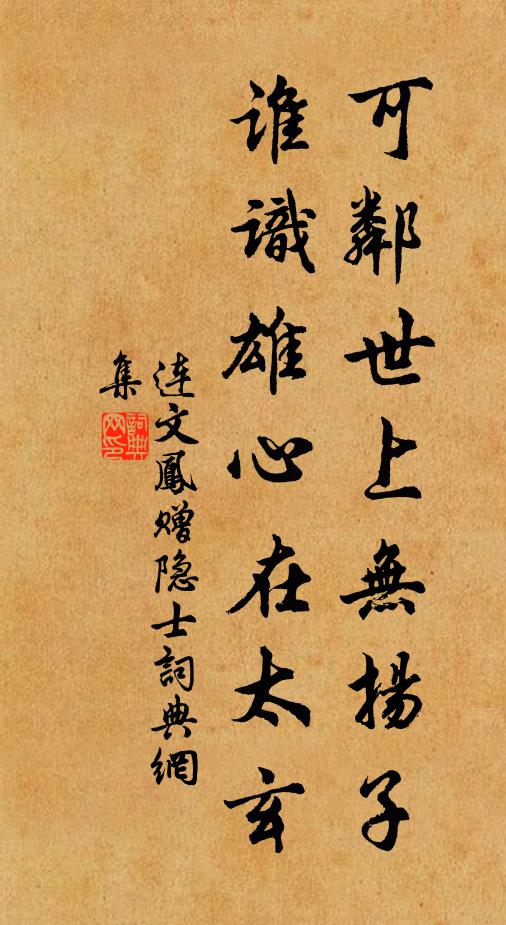 可鄰世上無揚子
誰識雄心在太玄
連文鳳贈隐士詞典網
集
詞典
网印